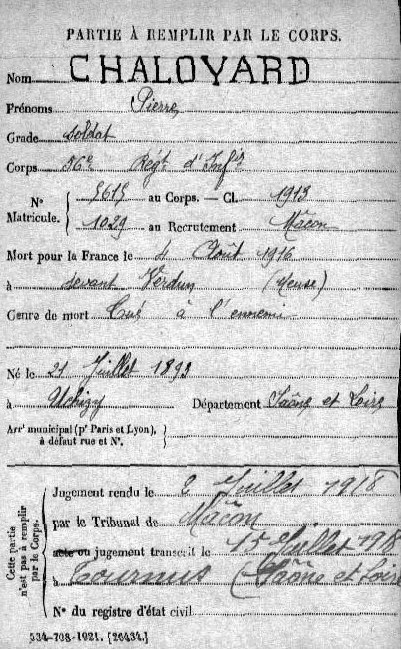 PARTIE À REMPLIR PAR LE CORPS.
Nom CHALOYARD
Prénoms Pierre
Grade soldat
Corps 56e Régt d'Infie
N° Matricule. 5615 au Corps. — Cl. 1913
1029 au Recrutement Mâcon
Mort pour la France le 4 Août 1916
à devant Verdun (Meuse)
Genre de mort Tué à l'ennemi
Né le 21 Juillet 1893
à Uchizy Département Saône et Loire
Arrt municipal (pr Paris et Lyon),
à défaut rue et N°.
Cette partie n'est pas à remplir par le Corps.
Jugement rendu le 2 Juillet 1918
par le Tribunal de Mâcon
acte ou jugement transcrit le 15 Juillet 1918
à Tournus (Saône et Loire
N° du registre d'état civil
534-708-1921. [26434.]